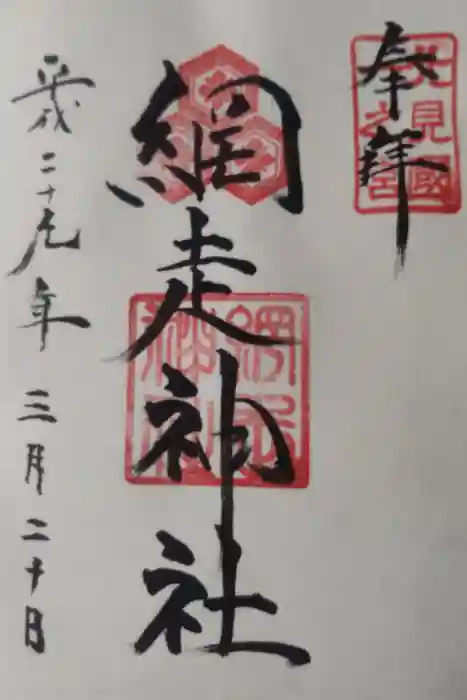 奉拝
北見國
之宮
網走神社
網走
神社
平成二十九年三月二十日